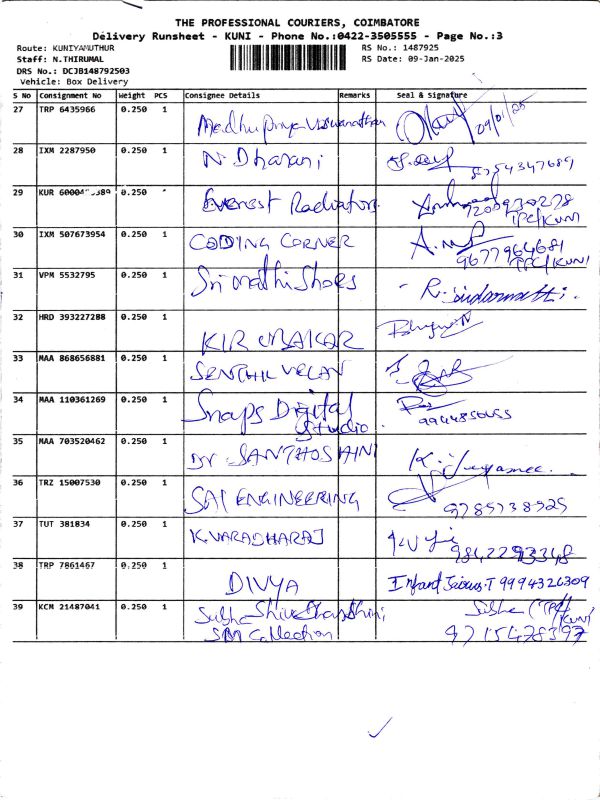 THE PROFESSIONAL COURIERS, COIMBATORE
Delivery Runsheet - KUNI - Phone No.:0422-3505555 - Page No.:3
Route: KUNIYAMUTHUR RS No.: 1487925
Staff: N.THIRUMAL RS Date: 09-Jan-2025
DRS No.: DCJB148792503
Vehicle: Box Delivery
S No Consignment No Weight PCS Consignee Details Remarks Seal & Signature
27 TRP 6435966 0.250 1 Madhu Priya Viswanathan 09/01/25
28 IXM 2287950 0.250 1 N. Dharani 8754347689
29 KUR 0.250 Everest Radiators 7200930278
TPC/KUNI
30 IXM 507673954 0.250 1 CODING CORNER 9677964681
TPC/KUNI
31 VPM 5532795 0.250 1 Sri mathi Shoes
32 HRD 393227288 0.250 1 KIRUBAKAR
33 MAA 868656881 0.250 1 SENTHIL VELAN
34 MAA 110361269 0.250 1 Snaps Digital
Studio
35 MAA 703520462 0.250 1 Dr SANTHOSHINI
36 TRZ 15007530 0.250 1 SAI ENGINEERING 9785738925
37 TUT 381834 0.250 1 K.VARADHARAJ
38 TRP 7861467 0.250 1 DIVYA 9994326309
39 KCM 21487041 0.250 1 Subha (TPC/
KUNI
SM Collection 9715478397